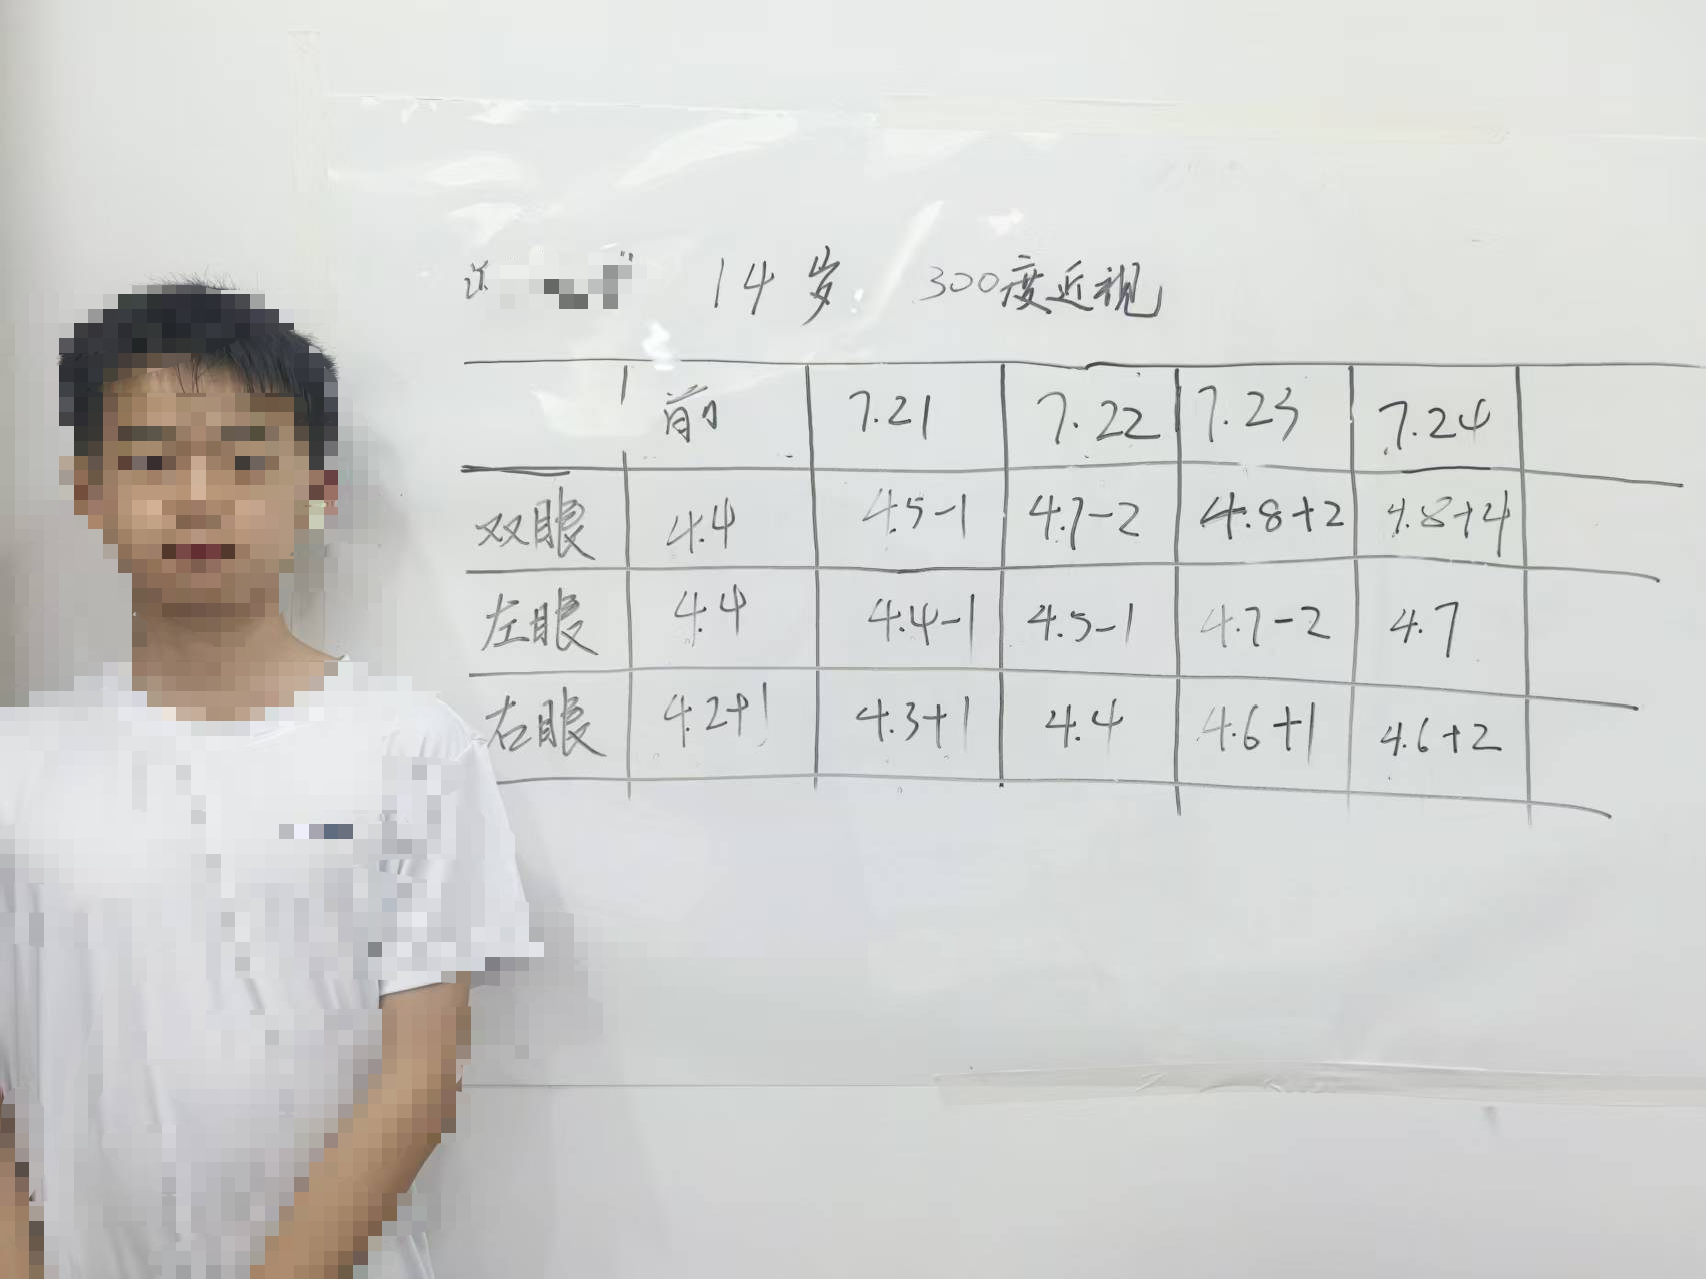 14岁 300度近视
前 7.21 7.22 7.23 7.24
双眼 4.4 4.5-1 4.7-2 4.8+2 4.8+4
左眼 4.4 4.4-1 4.5-1 4.7-2 4.7
右眼 4.2+1 4.3+1 4.4 4.6+1 4.6+2